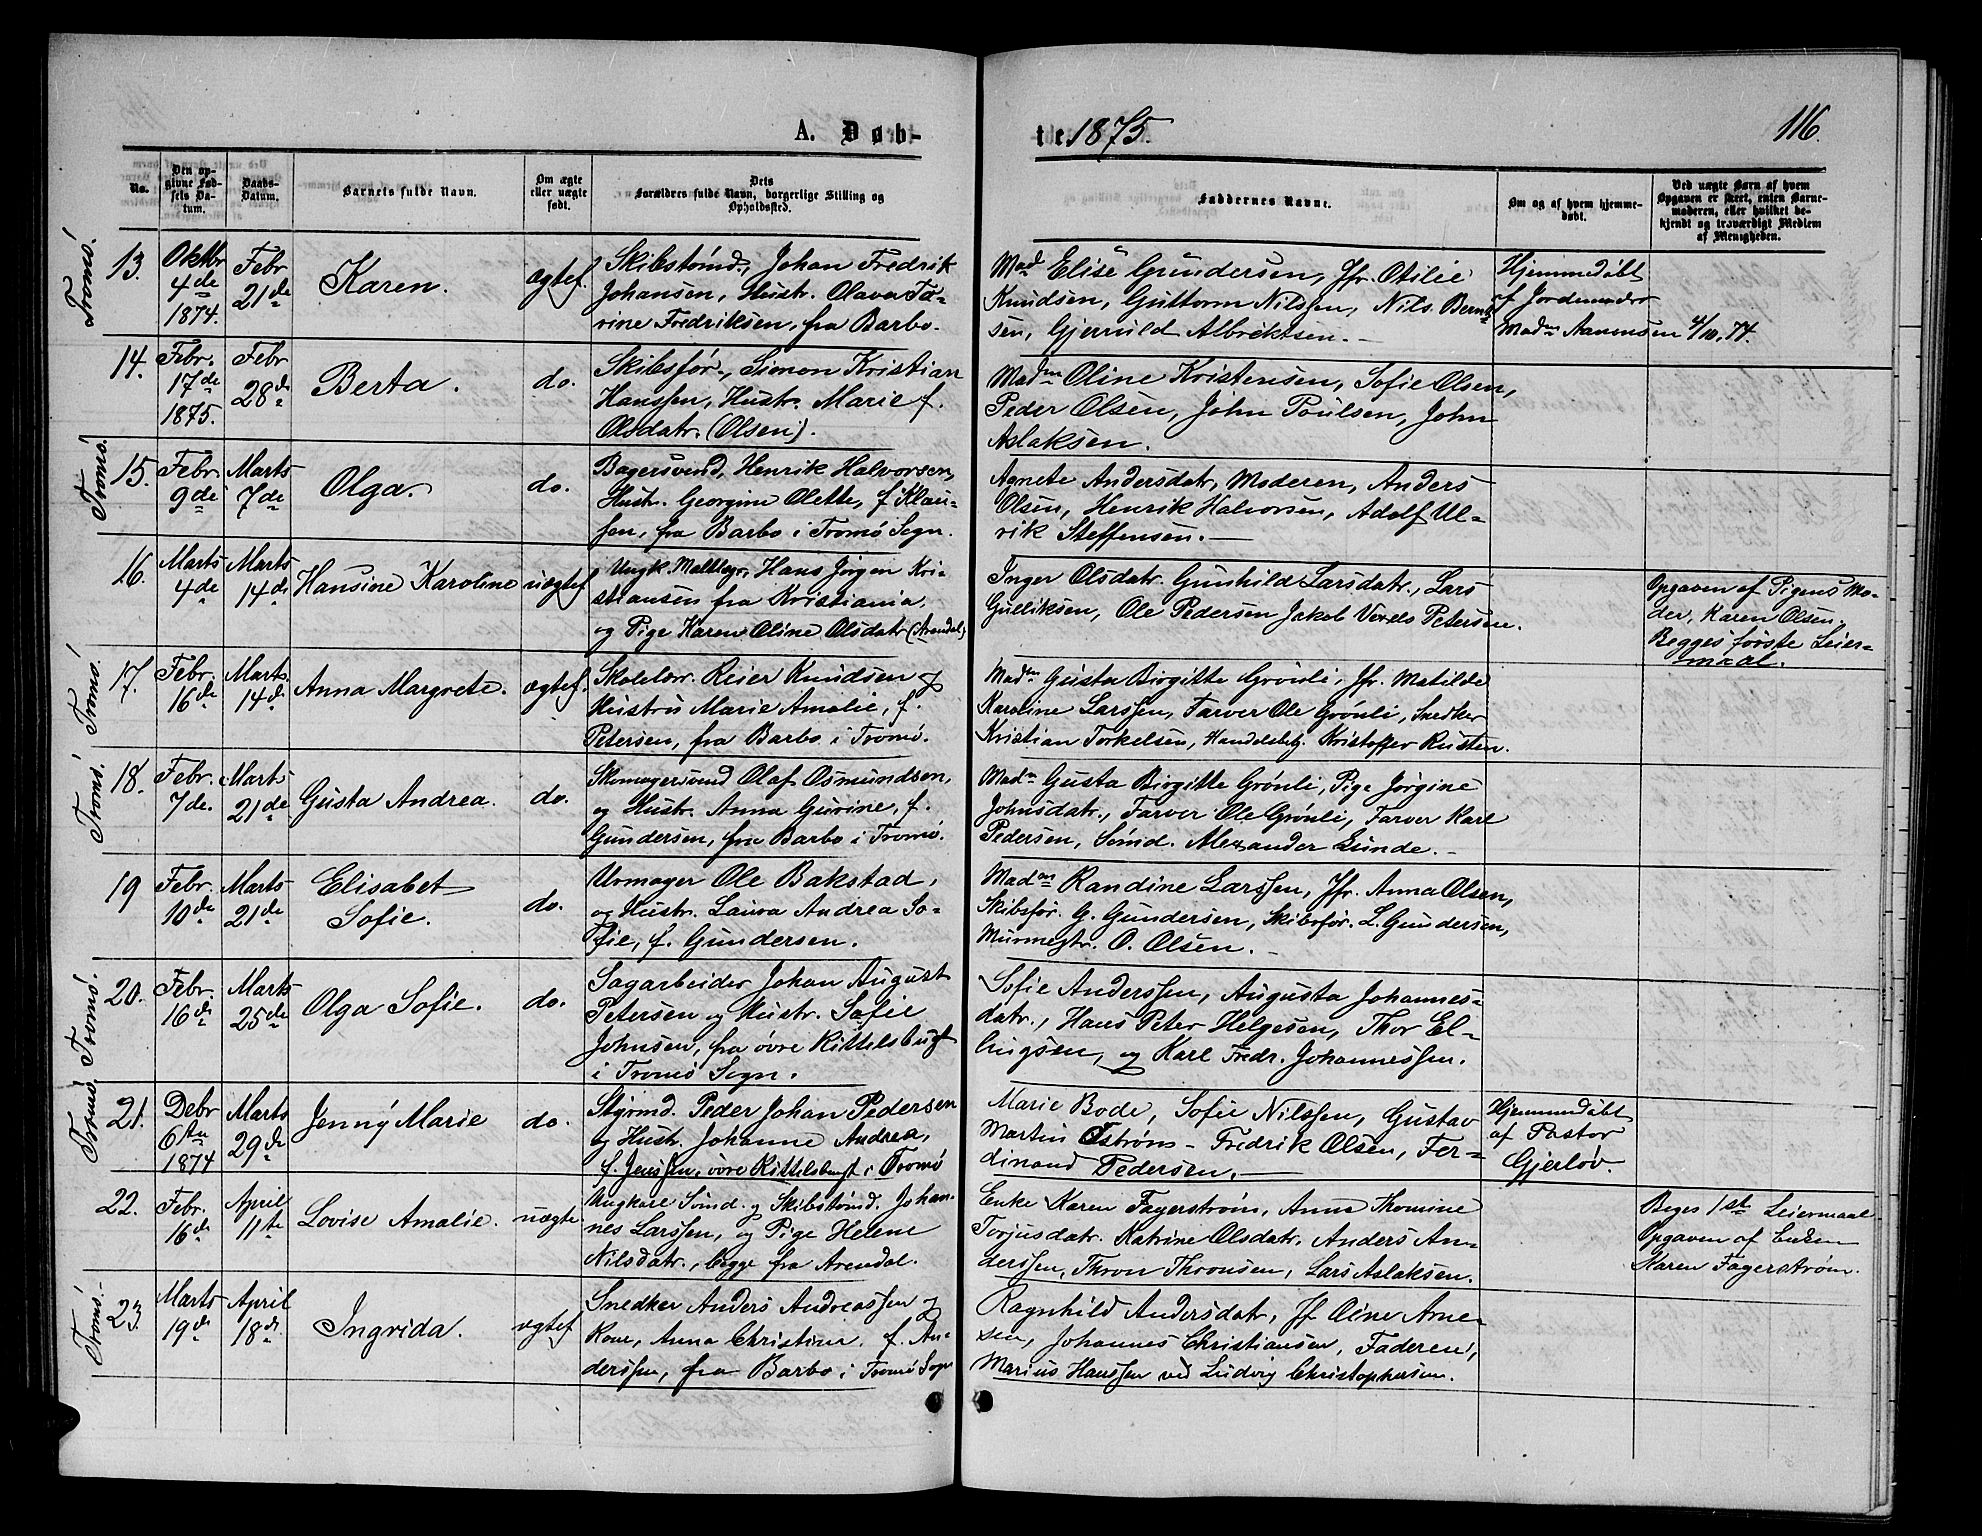 A. Døb-
te 1875.
116.
No.
Den opgivne Fødsels Datum.
Daabs-Datum.
Barnets fulde Navn.
Om ægte eller uægte født.
Dets Forældres fulde Navn, borgerlige Stilling og Opholdssted.
Faddernes Navne.
Om og af hvem hjemmedøbt.
Ved uægte Børn af hvem Opgaven er skeet, enten Barnemoderen, eller hvilket bekjendt og troværdigt Medlem af Menigheden.
Tromø.
13.
Oktbr 4de 1874.
Febr 21de
Karen.
ægtef.
Skibstømd., Johan Fredrik
Johansen, Hustr. Olava Ta-
rine Fredriksen, fra Barbo.
Mad Elise Gundersen, Jfr. Otilie
Knudsen, Guttorm Nilssen, Nils Bernt-
sen, Gjeruld Albrektsen.
Hjemmedøbt
f Jordemoder
Madm Aanensen 4/10. 74.
14.
Febr. 17de 1875.
Febr 28de
Berta.
do.
Skibsfør., Simon Kristian
Hanssen, Hustr. Marie f.
Olsdatr. (Olsen).
Madm Oline Kristensen, Sofie Olsen,
Peder Olsen, John Poulsen, John
Aslaksen.
Tromø.
15.
Febr. 9de
Marts 7de
Olga.
do.
Bagersvend, Henrik Halvorsen,
Hustr. Georgine Olette, f Klau-
sen, fra Barbo i Tromø Sogn.
Agnete Andersdatr, Moderen, Anders
Olsen, Henrik Halvorsen, Adolf Ul-
rik Steffensen.
16.
Marts 4de
Marts 14de
Hansine Karoline
uægtef
Ungk. Hans Jørgen Kri-
stiansen fra Kristiania.
og Pige Karen Oline Olsdatr (Arendal)
Inger Olsdatr. Gunhild Larsdatr., Lars
Gulliksen, Ole Pedersen Jakob Petersen.
Opgaven af Pigens Mo-
der, Karen Olsen.
Begges første Leier-
maal.
Tromø.
17.
Febr. 16de
Marts. 14de
Anna Margrete.
ægtef.
Skolelær. Reier Knudsen og
Hustru Marie Amalie, f.
Petersen, fra Barbo i Tromø.
Madm Gusta Birgitte Grønli, Jfr. Matilde
Karoline Larssen, Farver Ole Grønli, Snedker
Kristian Torkelsen, Handelsbetj. Kristoffer Rusten.
Tromø.
18.
Febr. 7de.
Marts 21de
Gusta Andrea.
do.
Skomagersvend Olaf Osmundsen,
og Hustr. Anna Gurine, f.
Gundersen, fra Barbo i Tromø.
Madm Gusta Birgitte Grønli, Pige Jørgine
Johnsdatr., Farver Ole Grønli, Farver Karl
Pedersen, Sømd. Alexander Lunde.
19
Febr. 10de
Marts 21de
Elisabet
Sofie.
do.
Urmager Ole Bakstad,
og Hustr. Laura Andrea So-
fie, f. Gundersen.
Madm Randine Larssen, Jfr. Anna Olsen,
Skibsfør. G. Gundersen, Skibsfør. L. Gundersen,
Murmestr. O. Olsen.
Tromø.
20.
Febr. 16de
Marts 25de
Olga Sofie.
do.
Sagarbeider Johan August
Petersen og Hustr. Sofie
Johnsen, fra øvre Kittelsbugt
i Tromø Sogn.
Sofie Anderssen, Augusta Johannes-
datr., Hans Peter Helgesen, Thor El-
lingsen, og Karl Fredr. Johannessen.
Tromø.
21.
Debr 6te 1874
Marts 29de
Jenny Marie
do.
Styrmd. Peder Johan Pedersen
og Hustr. Johanne Andrea,
f. Jenssen, øvre Kittelsbugt i Tromø
Marie Bode, Sofie Nilssen, Gustav
Martin Østrøm - Fredrik Olsen, Fer-
dinand Pedersen.
Hjemmedøbt
af Pastor
Gjerløv.
22.
Febr. 16de
April 11te
Lovise Amalie.
uægte
Ungkarl Sømd. og Skibstømd. Johan-
nes Larssen, og Pige Helene
Nilsdatr., begge fra Arendal.
Enke Karen Fagerstrøm, Anne Thomine
Torjusdatr. Katrine Olsdatr, Anders An-
derssen, Thron Thronsen, Lars Aslaksen.
Beges 1st Leiermaal
Opgaven af Enken
Karen Fagerstrøm.
Tromø.
23.
Marts 19de
April 18de
Ingrida.
ægtef
Snedker Anders Andreassen og
Kone, Anna Christine f. An-
derssen, fra Barbo i Tromø Sogn
Ragnhild Andersdatr, Jf Oline Arne-
sen, Johannes Christiansen, Faderen,
Marius Hanssen ved Ludvig Christophersen.